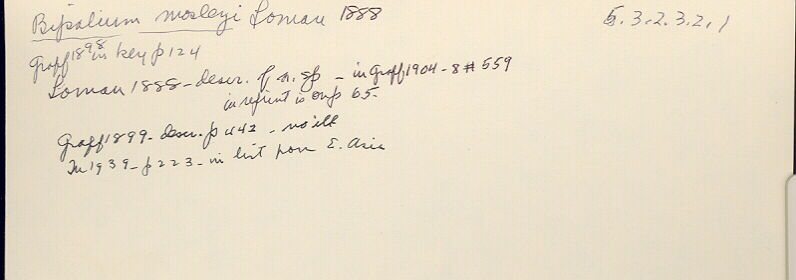 Bipalium mosleyi Loman 1888
5.3.2.3.2.1
Graff 1898 in key p 124
Loman 1888 - descr. of n. sp - in Graff 1904 - 8 # 559
in reprint is on p 65-
Graff 1899 - descr. p 442 - no ill
In 1939 - p 223 - in list from E. Asia